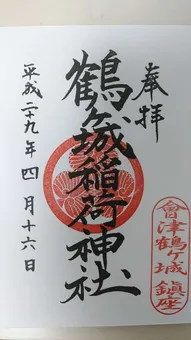 奉拝
鶴ヶ城稲荷神社
平成二十九年四月十六日
會津鶴ヶ城鎮座